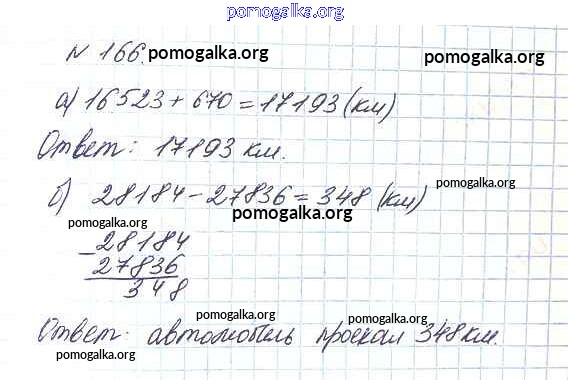 pomogalka.org
N 166. pomogalka.org pomogalka.org
а) 16523 + 670 = 17193 (км)
Ответ: 17193 км.
б) 28184 - 27836 = 348 (км) pomogalka.org
pomogalka.org pomogalka.org
- 28184
27836
348
pomogalka.org pomogalka.org
Ответ: автомобиль проехал 348 км.
pomogalka.org pomogalka.org